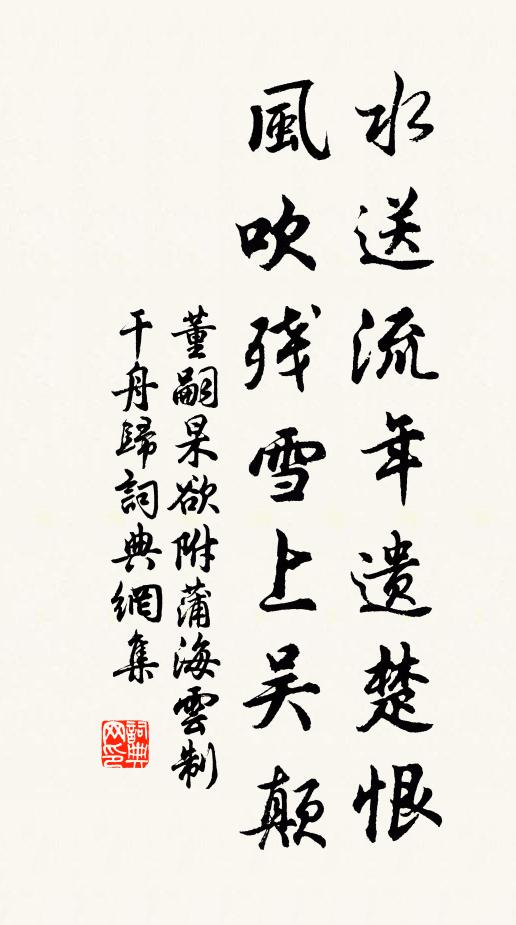 水送流年遗楚恨
風吹残雪上吴颠
董嗣杲欲附蒲海雲制
干舟歸詞典網集
詞典网印